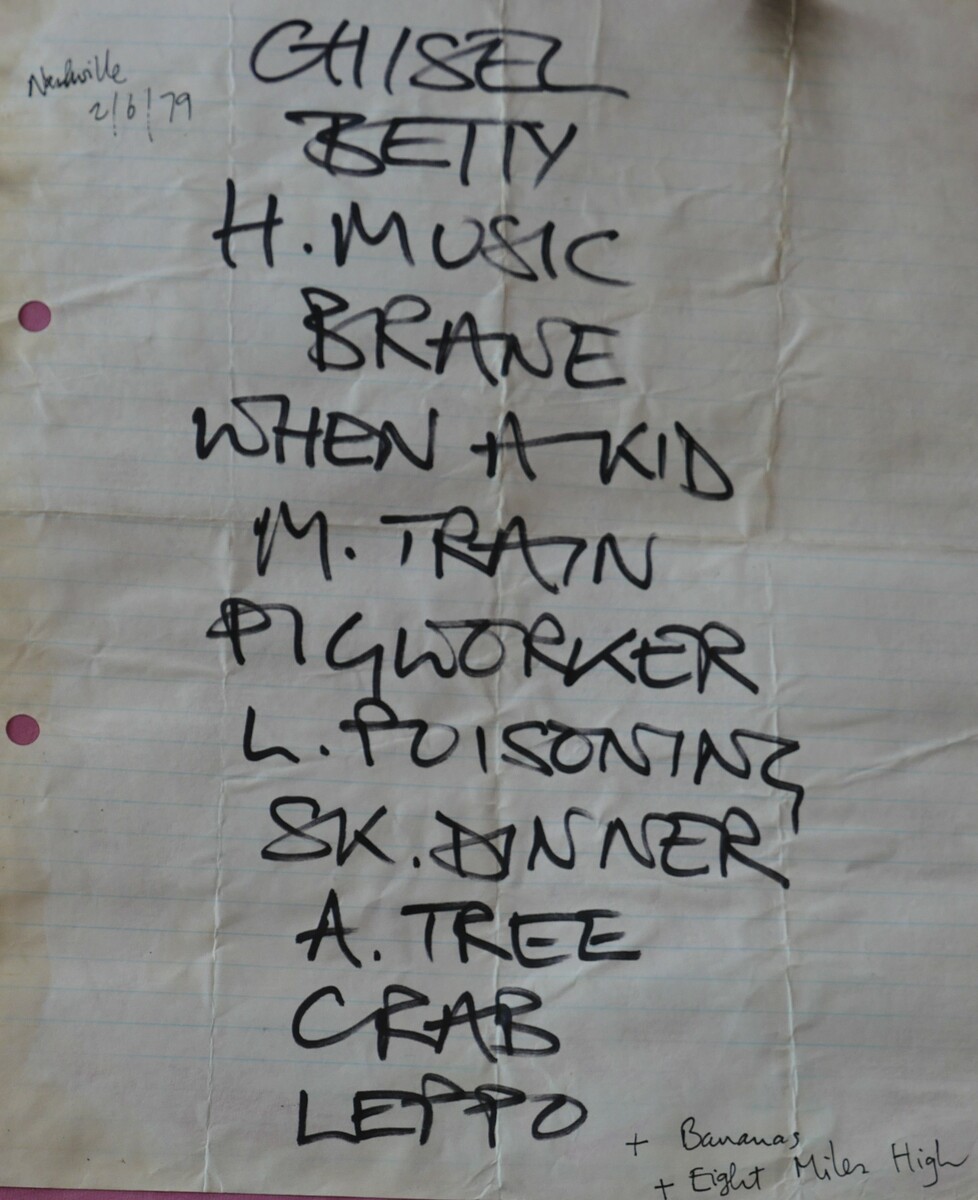 Nashville
2/6/79
CHISEL
BETTY
H. MUSIC
BRANE
WHEN A KID
M. TRAIN
PIGWORKER
L. POISONING
SK. DINNER
A. TREE
CRAB
LEPPO
+ Bananas
+ Eight Miles High